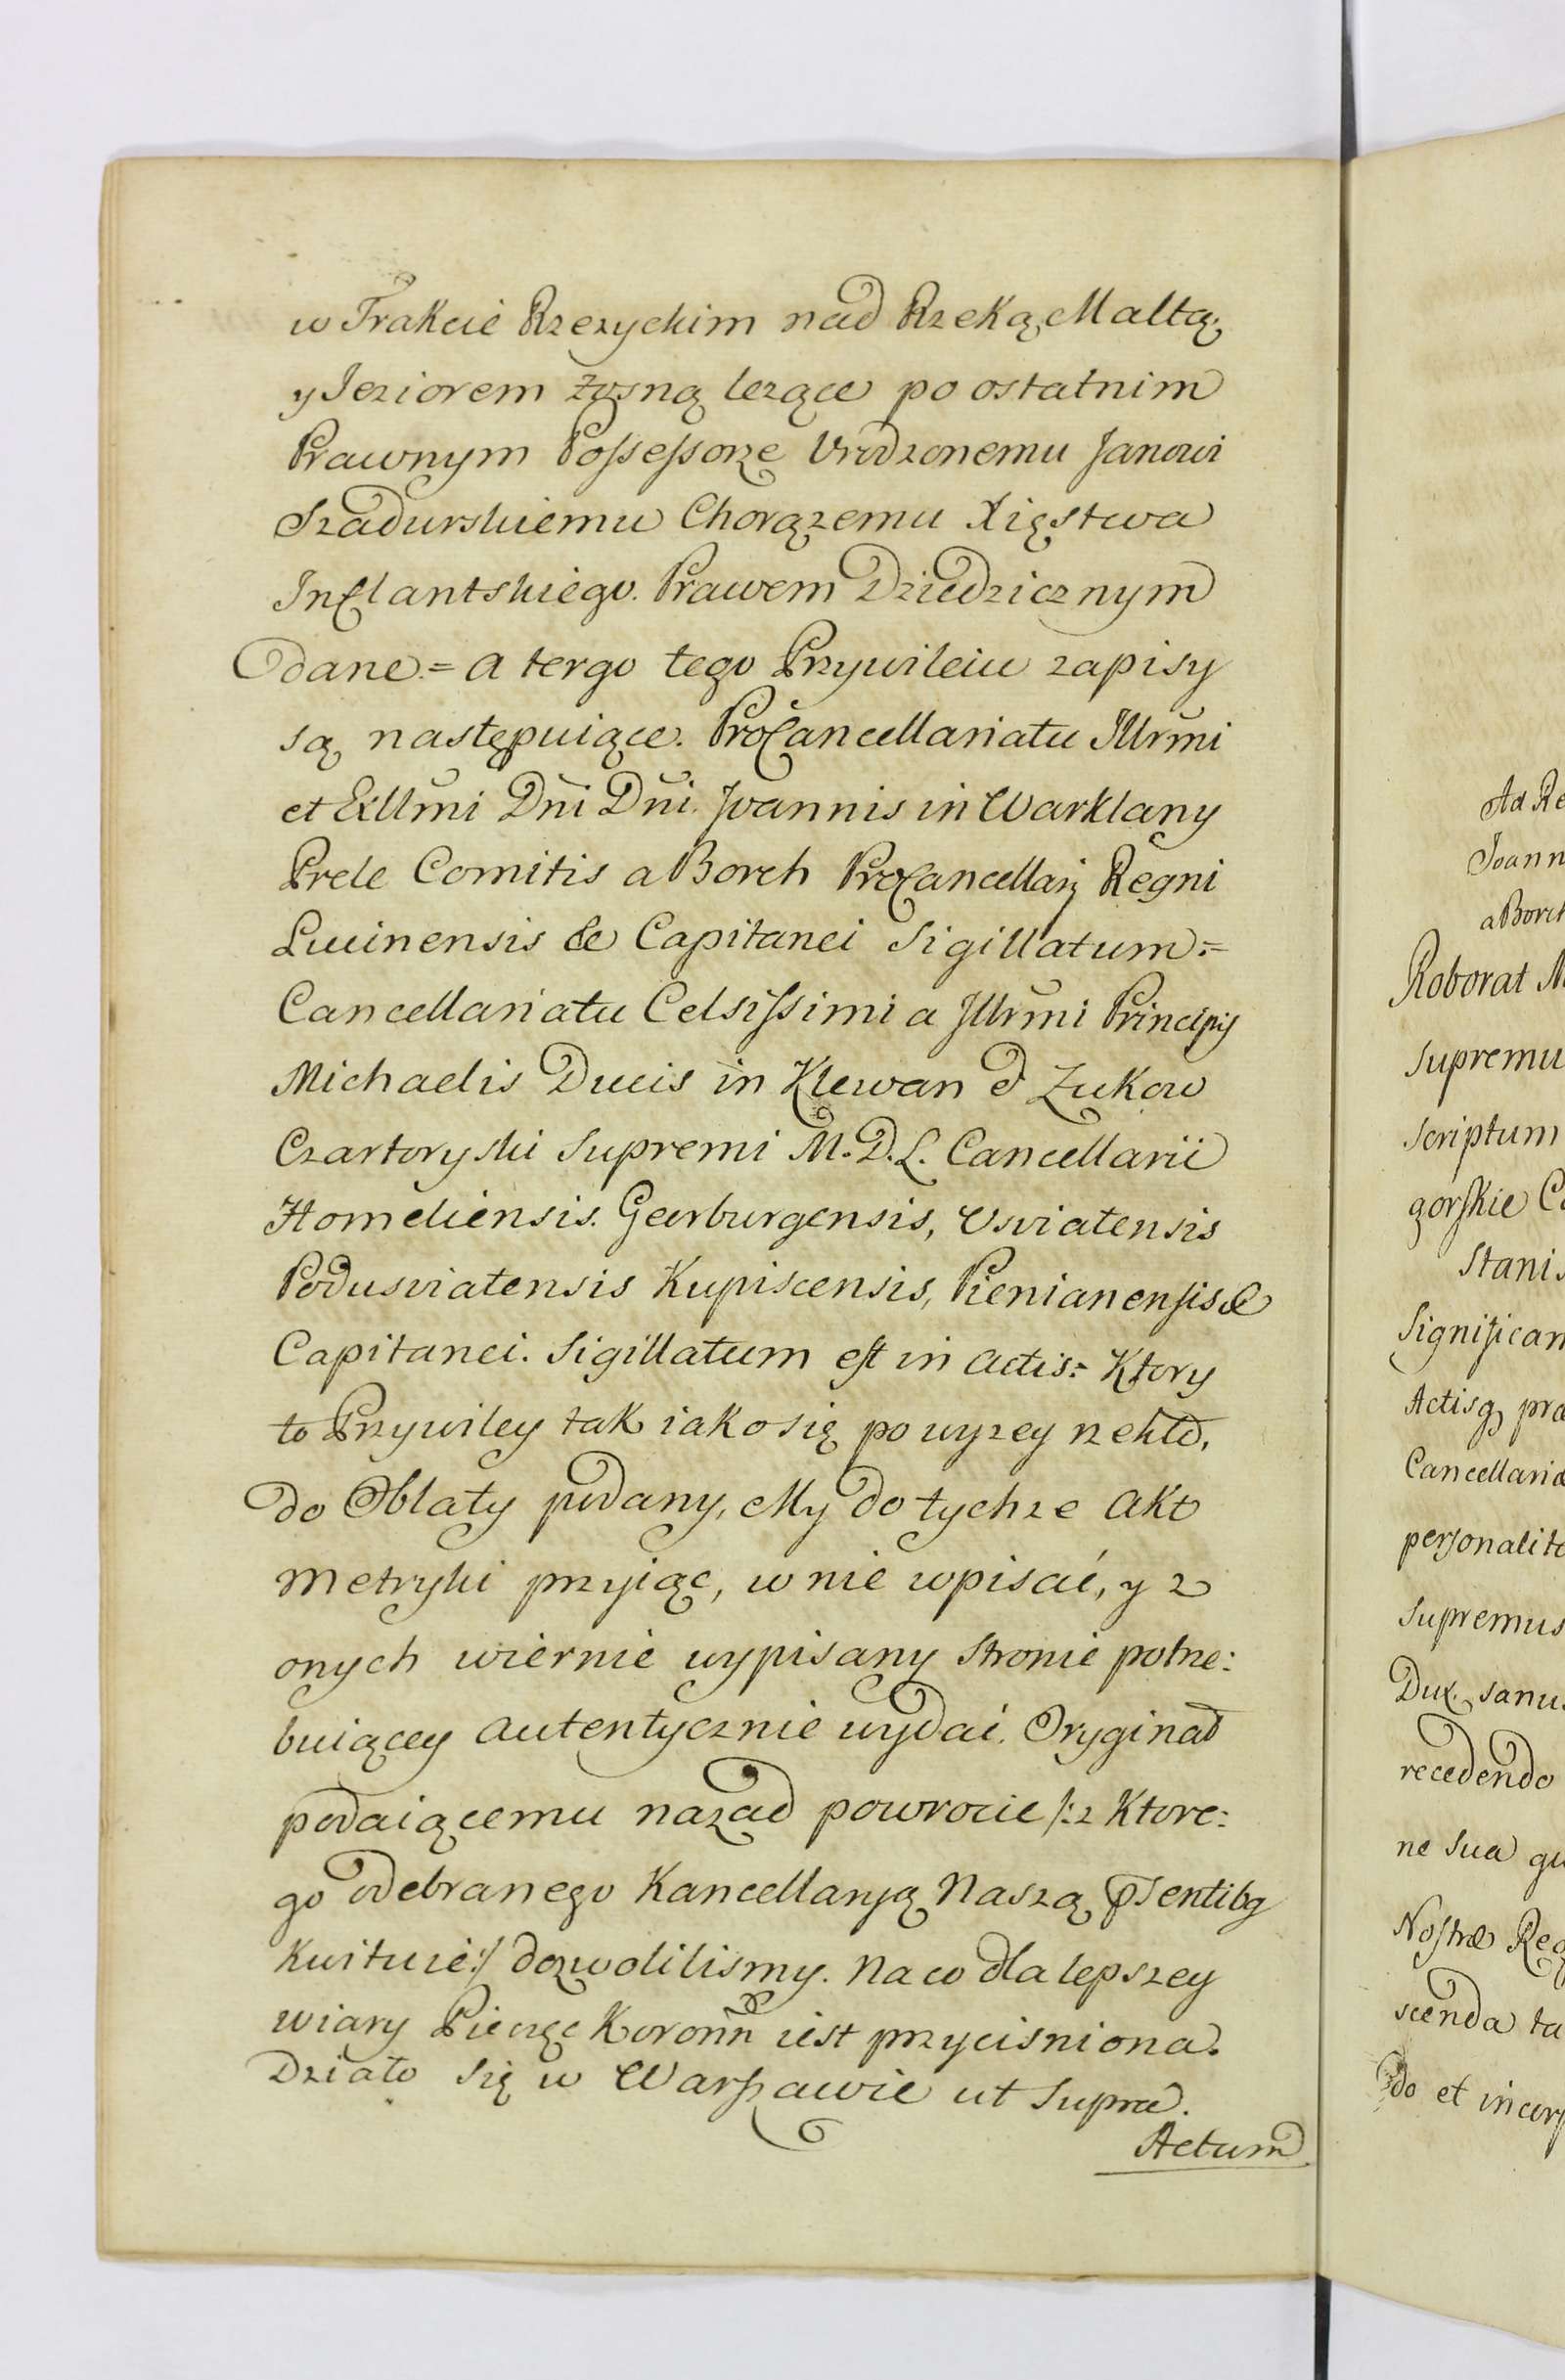 w Trakcie Rzezyckim nad Rzeką Maltą,
y Jeziorem Zosną lezące po ostatnim
Prawnym Possessorze Urodzonemu Janowi
Szadurskiemu Chorązemu Xięstwa
Inflantskiego. Prawem Dziedzicznym
dane.= a tergo tego Przywileiu zapisy
są następuiące. ProCancellariatu Illrmi
et Exllmi Dni Dni. Joannis in Warklany
Prele Comitis a Borch ProCancellarij Regni
Lucinensis &c Capitanei Sigillatum.=
Cancellariatu Celsissimi a Illrmi Principis
Michaelis Ducis in Klewan & Zukow
Czartoryski Supremi M. D. L. Cancellarii
Homeliensis. Geerburgensis, Usviatensis
Podusviatensis Kupiscensis, Pienianensis &c
Capitanei. Sigillatum est in actis:= Ktory
to Przywiley tak iako się powyzey rzekło,
do Oblaty podany, My do tychze Akt
Metryki przyiąc, w nie wpisać, y z
onych wiernie wypisany Stronie potrze:
buiącey autentycznie wydać. Oryginał
podaiącemu nazad powrocie /:z Ktore:
go odebranego Kancellaryą Naszą pSentibg
Kwituie:/ dozwolilismy. Na co dla lepszey
wiary Pieczęc Koronn iest przycisniona.
Działo się w Warszawie ut Supra.
Actum
Ad Re
Joann
a Borch
Roborat M
Supremu
Scriptum
gorskie C
Stanis
Significam
Actisq pra
Cancellaria
personalite
Supremus
Dux. Sanu
recedendo
ne Sua qu
Nostræ Reg
scenda ta
do et incorp